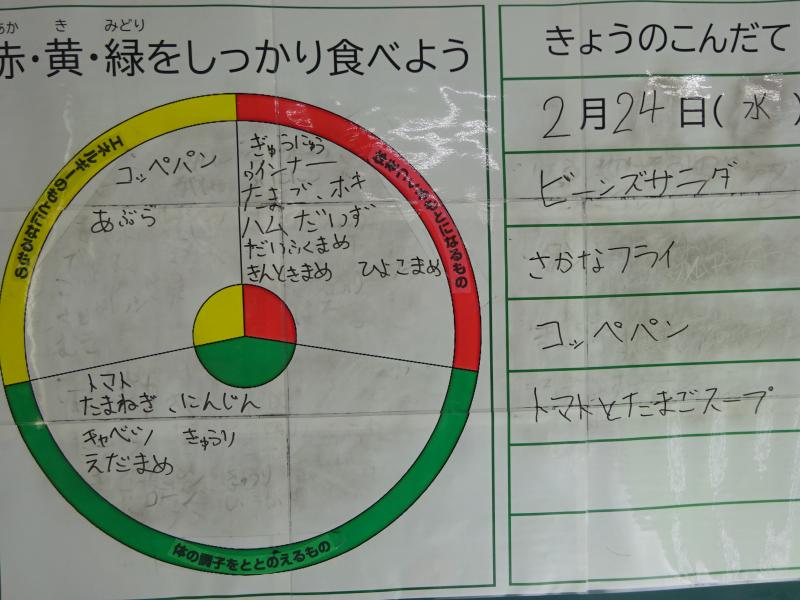 あか き みどり
赤・黄・緑をしっかり食べよう
エネルギーのもとになるもの
コッペパン
あぶら
体をつくるもとになるもの
ぎゅうにゅう
ウインナー
たまご、ホキ
ハム、だいず
だいふくまめ
きんときまめ ひよこまめ
トマト
たまねぎ、にんじん
キャベツ きゅうり
えだまめ
体の調子をととのえるもの
きょうのこんだて
2月24日(水)
ビーンズサラダ
さかなフライ
コッペパン
トマトとたまごスープ